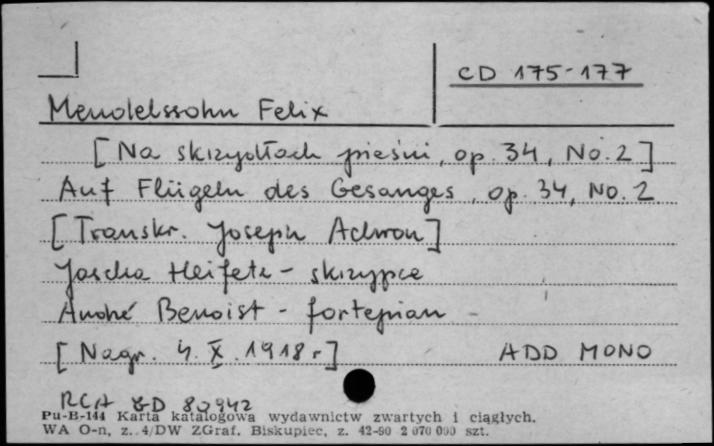 CD 175-177
Mendelssohn Felix
[Na skrzydłach pieśni, op. 34, No. 2]
Auf Flügeln des Gesanges, op. 34, No. 2
[Transkr. Joseph Achron]
Jascha Heifetz - skrzypce
André Benoist - fortepian
[Nagr. 4. X. 1918 r]
ADD MONO
RCA GD 80942
Pu-B-144 Karta katalogowa wydawnictw zwartych i ciągłych.
WA O-n, z. 4/DW ZGraf. Biskupiec, z. 42-90 2 070 000 szt.